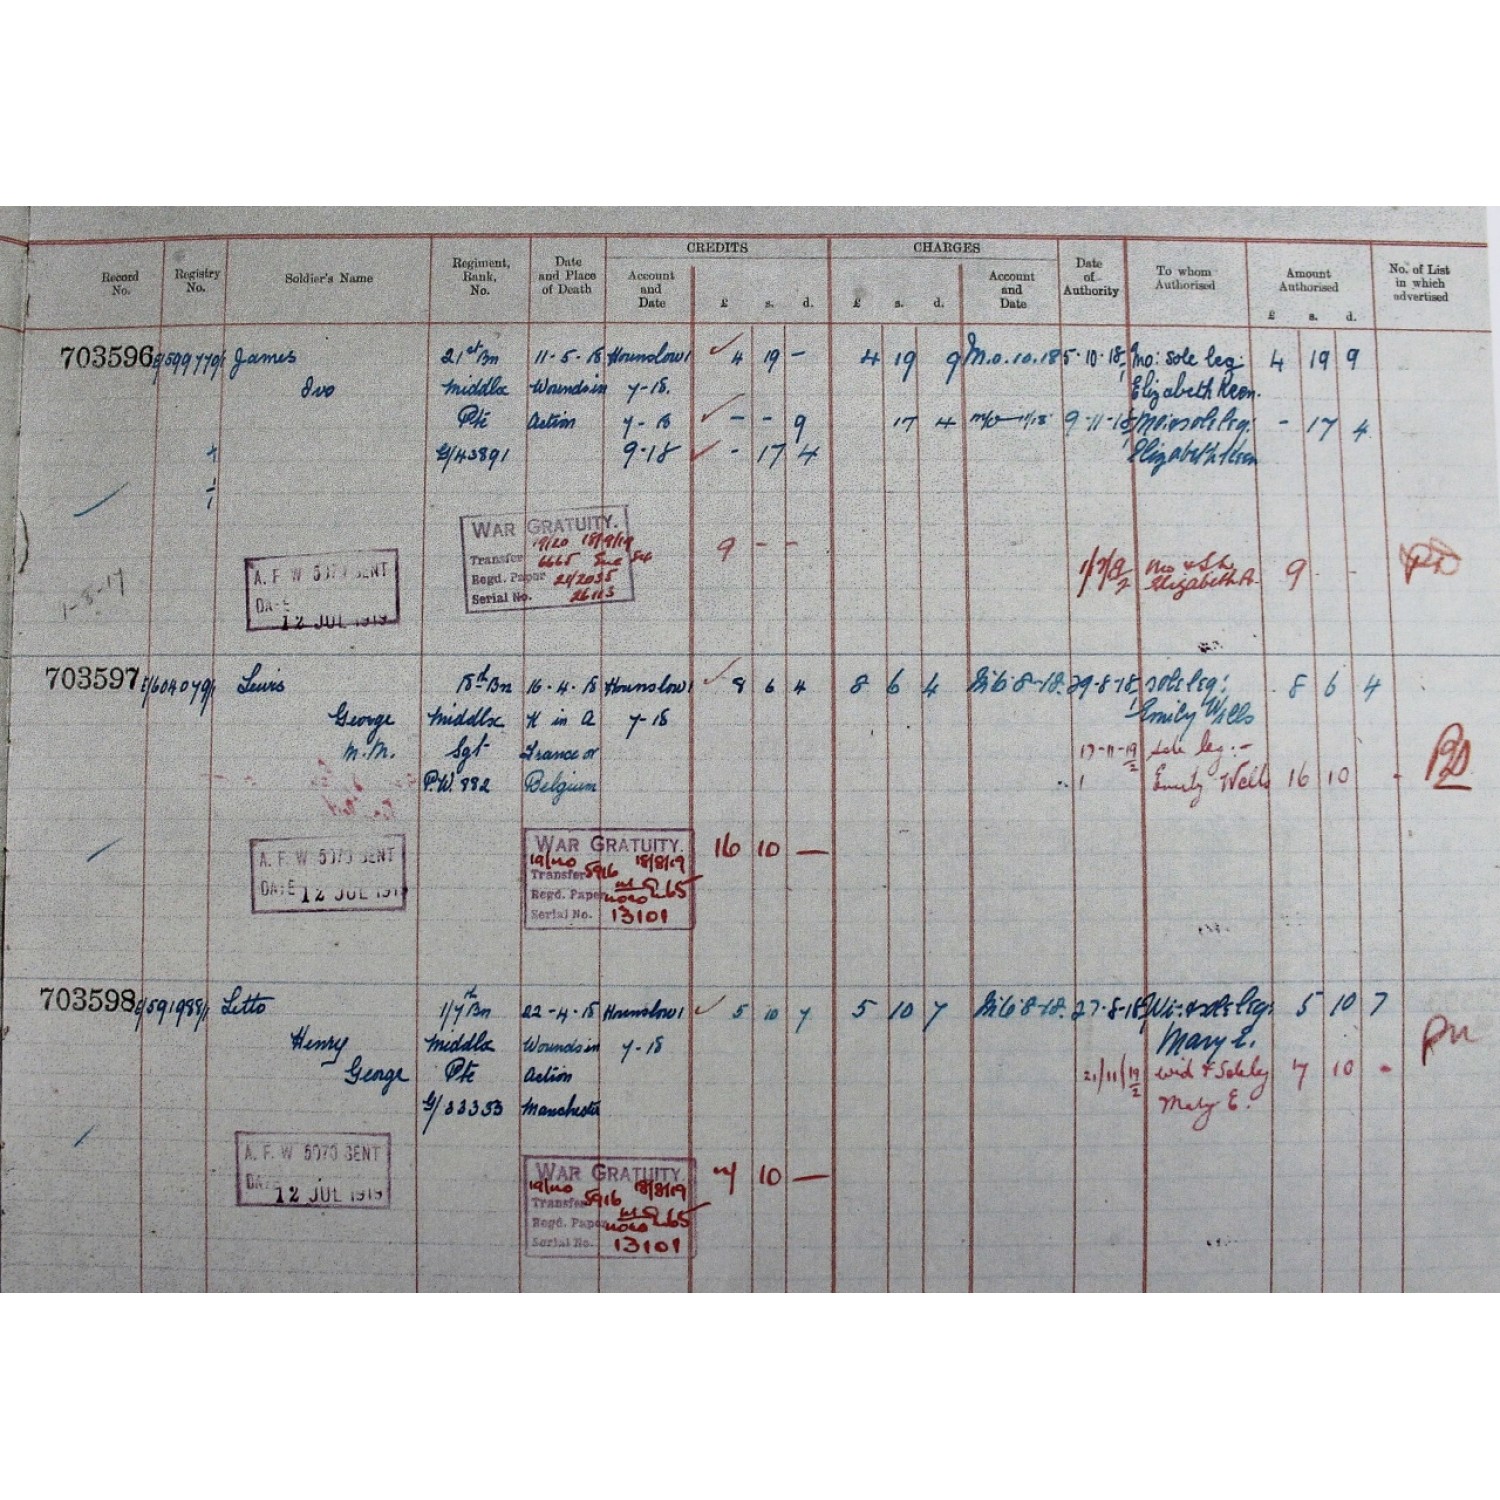 CREDITS CHARGES
Record No. Registry No. Soldier's Name Regiment, Rank, No. Date and Place of Death Account and Date £ s. d. £ s. d. Account and Date Date of Authority To whom Authorised Amount Authorised £ s. d. No. of List in which advertised
703596 E/599779/1 James 21st Bn 11-5-18 Hounslow 1 4 19 - 4 19 9 M.O. 10.18 5-10-18 Mo: sole leg: 4 19 9
Ivo Middlx Wounds in 7-18. Elizabeth Keen.
Pte Action 7-18 - - 9 17 4 9-11-18 Mo: & sole leg. - 17 4
G/43891 9-18 - 17 4 Elizabeth Keen
WAR GRATUITY.
19/20 18/9/19
Transfer 6665
Regd. Paper 21/2035
Serial No.
9 - - Elizabeth 9 - -
A. F. W 5070 SENT
DATE
12 JUL 1919
1-8-17
703597 E/604079/1 Lewis 18th Bn 16-4-18 Hounslow 1 8 6 4 8 6 4 8-18. 29-8-18 sole leg: 8 6 4
George Middlx K in A 7-18 Emily Wells
M.M. Sgt France or 17-11-19 sole leg:-
P.W. 882 Belgium Emily Wells 16 10 -
A. F. W 5070 SENT
DATE 12 JUL 191
WAR GRATUITY. 16 10 —
18/8/19
Transfer 5916
Regd. Paper
Serial No. 13101
703598 E/591988/1 Letto 1/7th Bn 22-4-18 Hounslow 1 5 10 7 5 10 7 8-18. 27-8-18 Wi- & sole leg: 5 10 7
Henry Middlx Wounds in 7-18 Mary E.
George Pte Action 21/11/19 wid & Sole leg 7 10 -
G/33353 Manchester Mary E.
A. F. W 5070 SENT
DATE
12 JUL 1919
WAR GRATUITY. 7 10 —
18/8/19
Transfer 5916
Regd. Paper
Serial No. 13101